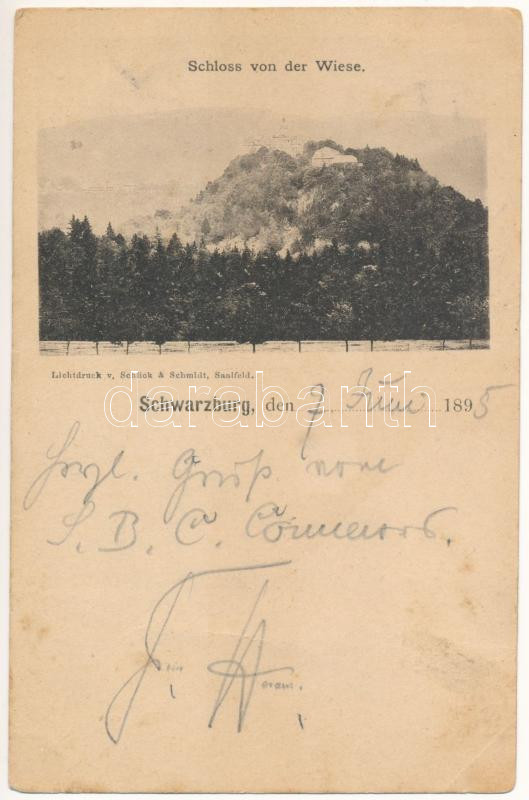 Schloss von der Wiese.
Lichtdruck v. Schlick & Schmidt, Saalfeld.
darabanth.com
Schwarzburg, den 7. Juni 1895
Herzl. Gruß vom
S. B. C. Commers.